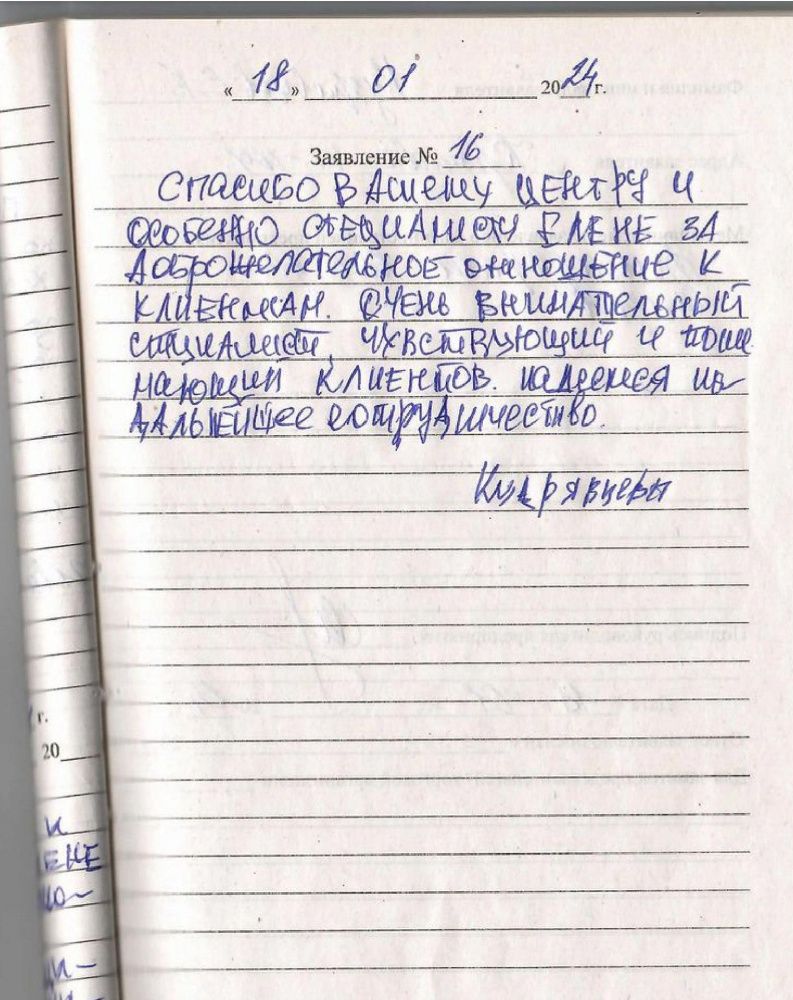 « 18 » 01 2024 г.
Заявление № 16
СПАСИБО ВАШЕМУ ЦЕНТРУ И
ОСОБЕННО СПЕЦИАЛИСТУ ЕЛЕНЕ ЗА
ДОБРОЖЕЛАТЕЛЬНОЕ ОТНОШЕНИЕ К
КЛИЕНТАМ. ОЧЕНЬ ВНИМАТЕЛЬНЫЙ
СПЕЦИАЛИСТ, ЧУВСТВУЮЩИЙ И ПОНИ
МАЮЩИЙ КЛИЕНТОВ. НАДЕЕМСЯ НА
ДАЛЬНЕЙШЕЕ СОТРУДНИЧЕСТВО.
Кудрявцевы
г.
20
И
ЕНЕ